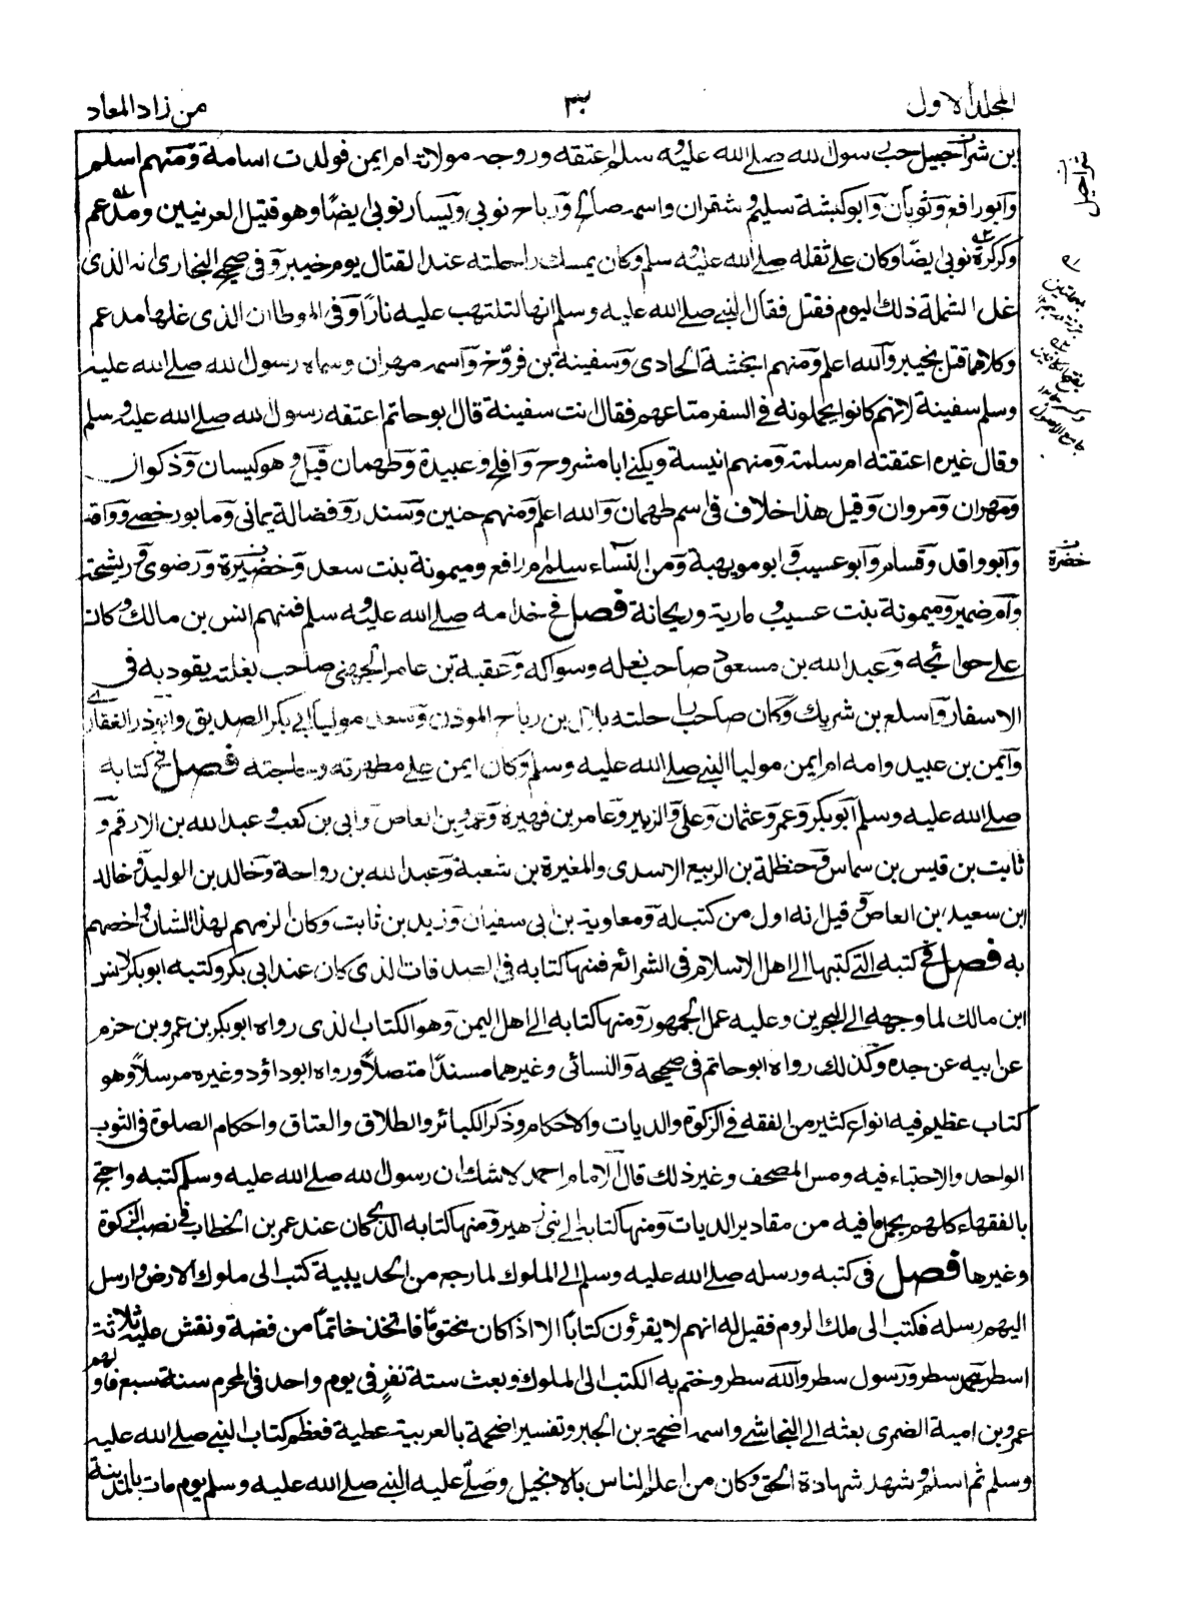 المجلد الاول
٣٠
من زاد المعاد
بن شراحيل حب رسول الله صلى الله عليه وسلم اعتقه وزوجه مولاته ام ايمن فولدت اسامة ومنهم اسلم
وابو رافع وثوبان وابو كبشة سليم وشقران واسمه صالح ورباح نوبي ويسار نوبي ايضًا وهو قتيل العرنيين ومدعم
وكركرة نوبي ايضًا وكان على ثقله صلى الله عليه وسلم وكان يمسك راحلته عند القتال يوم خيبر وفي صحيح البخاري انه الذي
غل الشملة ذلك اليوم فقتل فقال النبي صلى الله عليه وسلم انها لتلتهب عليه نارًا وفي الموطا ان الذي غلها مدعم
وكلاهما قتل بخيبر والله اعلم ومنهم انجشة الحادي وسفينة بن فروخ واسمه مهران وسماه رسول الله صلى الله عليه
وسلم سفينة لانهم كانوا يحملونه في السفر متاعهم فقال انت سفينة قال ابو حاتم اعتقه رسول الله صلى الله عليه وسلم
وقال غيره اعتقته ام سلمة ومنهم انيسة ويكنى ابا مشروح وافلح وعبيدة وطهمان قيل وهو كيسان وذكوان
ومهران ومروان وقيل هذا خلاف في اسم طهمان والله اعلم ومنهم حنين وسندر وفضالة يماني ومابور خصي وواقد
وابو واقد وقسام وابو عسيب وابو مويهبة ومن النساء سلمى ام رافع وميمونة بنت سعد وخضيرة ورضوى وريشحة
وام ضمير وميمونة بنت عسيب ومارية وريحانة فصل في خدامه صلى الله عليه وسلم فمنهم انس بن مالك وكان
على حوائجه وعبد الله بن مسعود صاحب نعله وسواكه وعقبة بن عامر الجهني صاحب بغلته يقود به في
الاسفار واسلع بن شريك وكان صاحب راحلته وبلال بن رباح الموذن وسعد موليا ابي بكر الصديق وابو ذر الغفاري
وايمن بن عبيد وامه ام ايمن موليا النبي صلى الله عليه وسلم وكان ايمن على مطهرته وحاجته فصل في كتابه
صلى الله عليه وسلم ابو بكر وعمر وعثمان وعلي والزبير وعامر بن فهيرة وعمرو بن العاص وابي بن كعب وعبد الله بن الارقم و
ثابت بن قيس بن سماس وحنظلة بن الربيع الاسدي والمغيرة بن شعبة وعبد الله بن رواحة وخالد بن الوليد وخالد
ابن سعيد بن العاص وقيل انه اول من كتب له ومعاوية بن ابي سفيان وزيد بن ثابت وكان الزمهم لهذا الشان واخصهم
به فصل في كتبه التي كتبها الى اهل الاسلام في الشرائع فمنها كتابه في الصدقات الذي كان عند ابي بكر وكتبه ابو بكر لانس
ابن مالك لما وجهه الى البحرين وعليه عمل الجمهور ومنها كتابه الى اهل اليمن وهو الكتاب الذي رواه ابو بكر بن عمرو بن حزم
عن ابيه عن جده وكذلك رواه ابو حاتم في صحيحه والنسائي وغيرهما مسندًا متصلًا ورواه ابو داؤد وغيره مرسلًا وهو
كتاب عظيم فيه انواع كثير من الفقه في الزكوة والديات والاحكام وذكر الكبائر والطلاق والعتاق واحكام الصلوة في الثوب
الواحد والاحتباء فيه ومس المصحف وغير ذلك قال الامام احمد لا شك ان رسول الله صلى الله عليه وسلم كتبه واحتج
بالفقهاء كلهم بما فيه من مقادير الديات ومنها كتابه الى بني زهير ومنها كتابه الذي كان عند عمر بن الخطاب في نصب الزكوة
وغيرها فصل في كتبه ورسله صلى الله عليه وسلم الى الملوك لما رجع من الحديبية كتب الى ملوك الارض وارسل
اليهم رسله فكتب الى ملك الروم فقيل له انهم لا يقرؤن كتابًا الا اذا كان مختومًا فاتخذ خاتمًا من فضة ونقش عليه ثلاثة
اسطر محمد سطر ورسول سطر والله سطر وختم به الكتب الى الملوك وبعث ستة نفر في يوم واحد في المحرم سنة سبع فاولهم
عمرو بن امية الضمري بعثه الى النجاشي واسمه اصحمة بن ابجر وتفسير اصحمة بالعربية عطية فعظم كتاب النبي صلى الله عليه
وسلم ثم اسلم وشهد شهادة الحق وكان من اعلم الناس بالانجيل وصلى عليه النبي صلى الله عليه وسلم يوم مات بالمدينة
شراحيل
جامع الاصول
خضرة